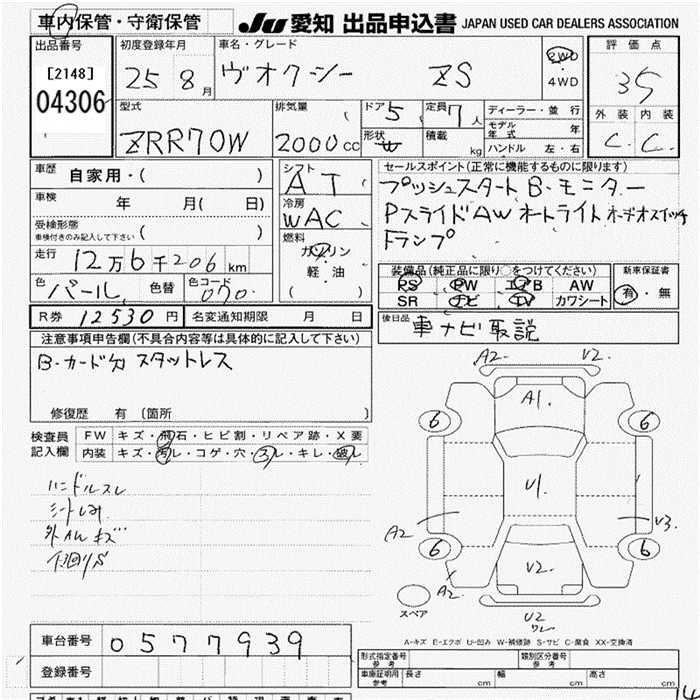 車内保管・守衛保管 JU 愛知 出品申込書 JAPAN USED CAR DEALERS ASSOCIATION
出品番号 [2148] 04306
初度登録年月 25 8月
車名・グレード ヴオクシー ZS
2WD・4WD
評価点 35
外装 内装
C. C.
型式 ZRR70W
排気量 2000cc
ドア 5 定員 7人
形状 積載 kg
ディーラー・並行
モデル年式 年
ハンドル 左・右
車歴 自家用・( )
車検 年 月( 日)
受検形態 車検付きのみ記入して下さい ( )
走行 12万6千206km
色 パール 色替 色コード 070
シフト AT
冷房 WAC
燃料 ガソリン
軽・油
( )
セールスポイント(正常に機能するものに限ります)
プッシュスタート B・モニター
PスライドAWオートライト
Fランプ
装備品(純正品に限り○をつけてください) 新車保証書
PS PW エアB AW 有・無
SR ナビ TV カワシート
後日品 車ナビ取説
R券 12530円 名変通知期限 月 日
注意事項申告欄(不具合内容等は具体的に記入して下さい)
B・カード欠 スタットレス
修復歴 有 〔箇所 〕
検査員記入欄
FW キズ・飛石・ヒビ割・リペア跡・X要
内装 キズ・汚レ・コゲ・穴・スレ・キレ・破レ
ハンドルスレ
シートしみ
外AWキズ
下回りS
A2 V2
A1
6 6
U1
A2 U3
6 6
V2
A2
スペア
U2
ワレ
A-キズ E-エクボ U-凹み W-補修跡 S-サビ C-腐食 XX-交換済
車台番号 0577939
登録番号
型式指定番号 参考 類別区分番号 参考
車庫証明用 参考 長さ cm 幅 cm 高さ cm